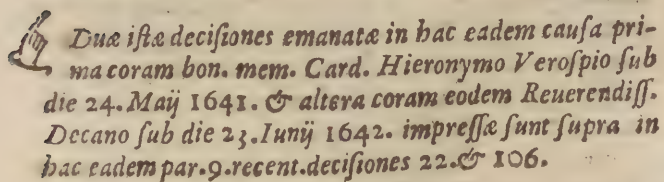 Duæ iſtæ deciſiones emanatæ in hac eadem cauſa pri-
ma coram bon. mem. Card. Hieronymo Veroſpio ſub
die 24. Maij 1641. & altera coram eodem Reuerendiſſ.
Decano ſub die 23. Iunij 1642. impreſſæ ſunt ſupra in
hac eadem par. 9. recent. deciſiones 22. & 106.